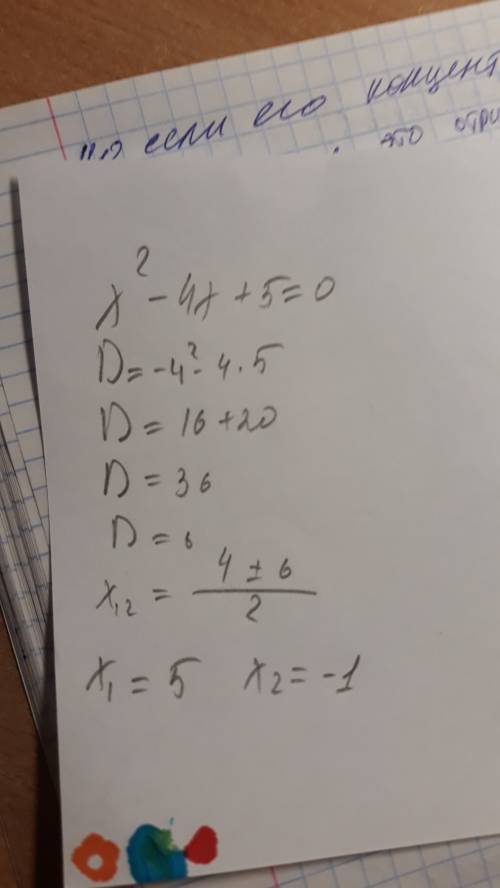 если его концент
это отри
x² - 4x + 5 = 0
D = -4² - 4 · 5
D = 16 + 20
D = 36
D = 6
x₁,₂ = (4 ± 6) / 2
x₁ = 5 x₂ = -1